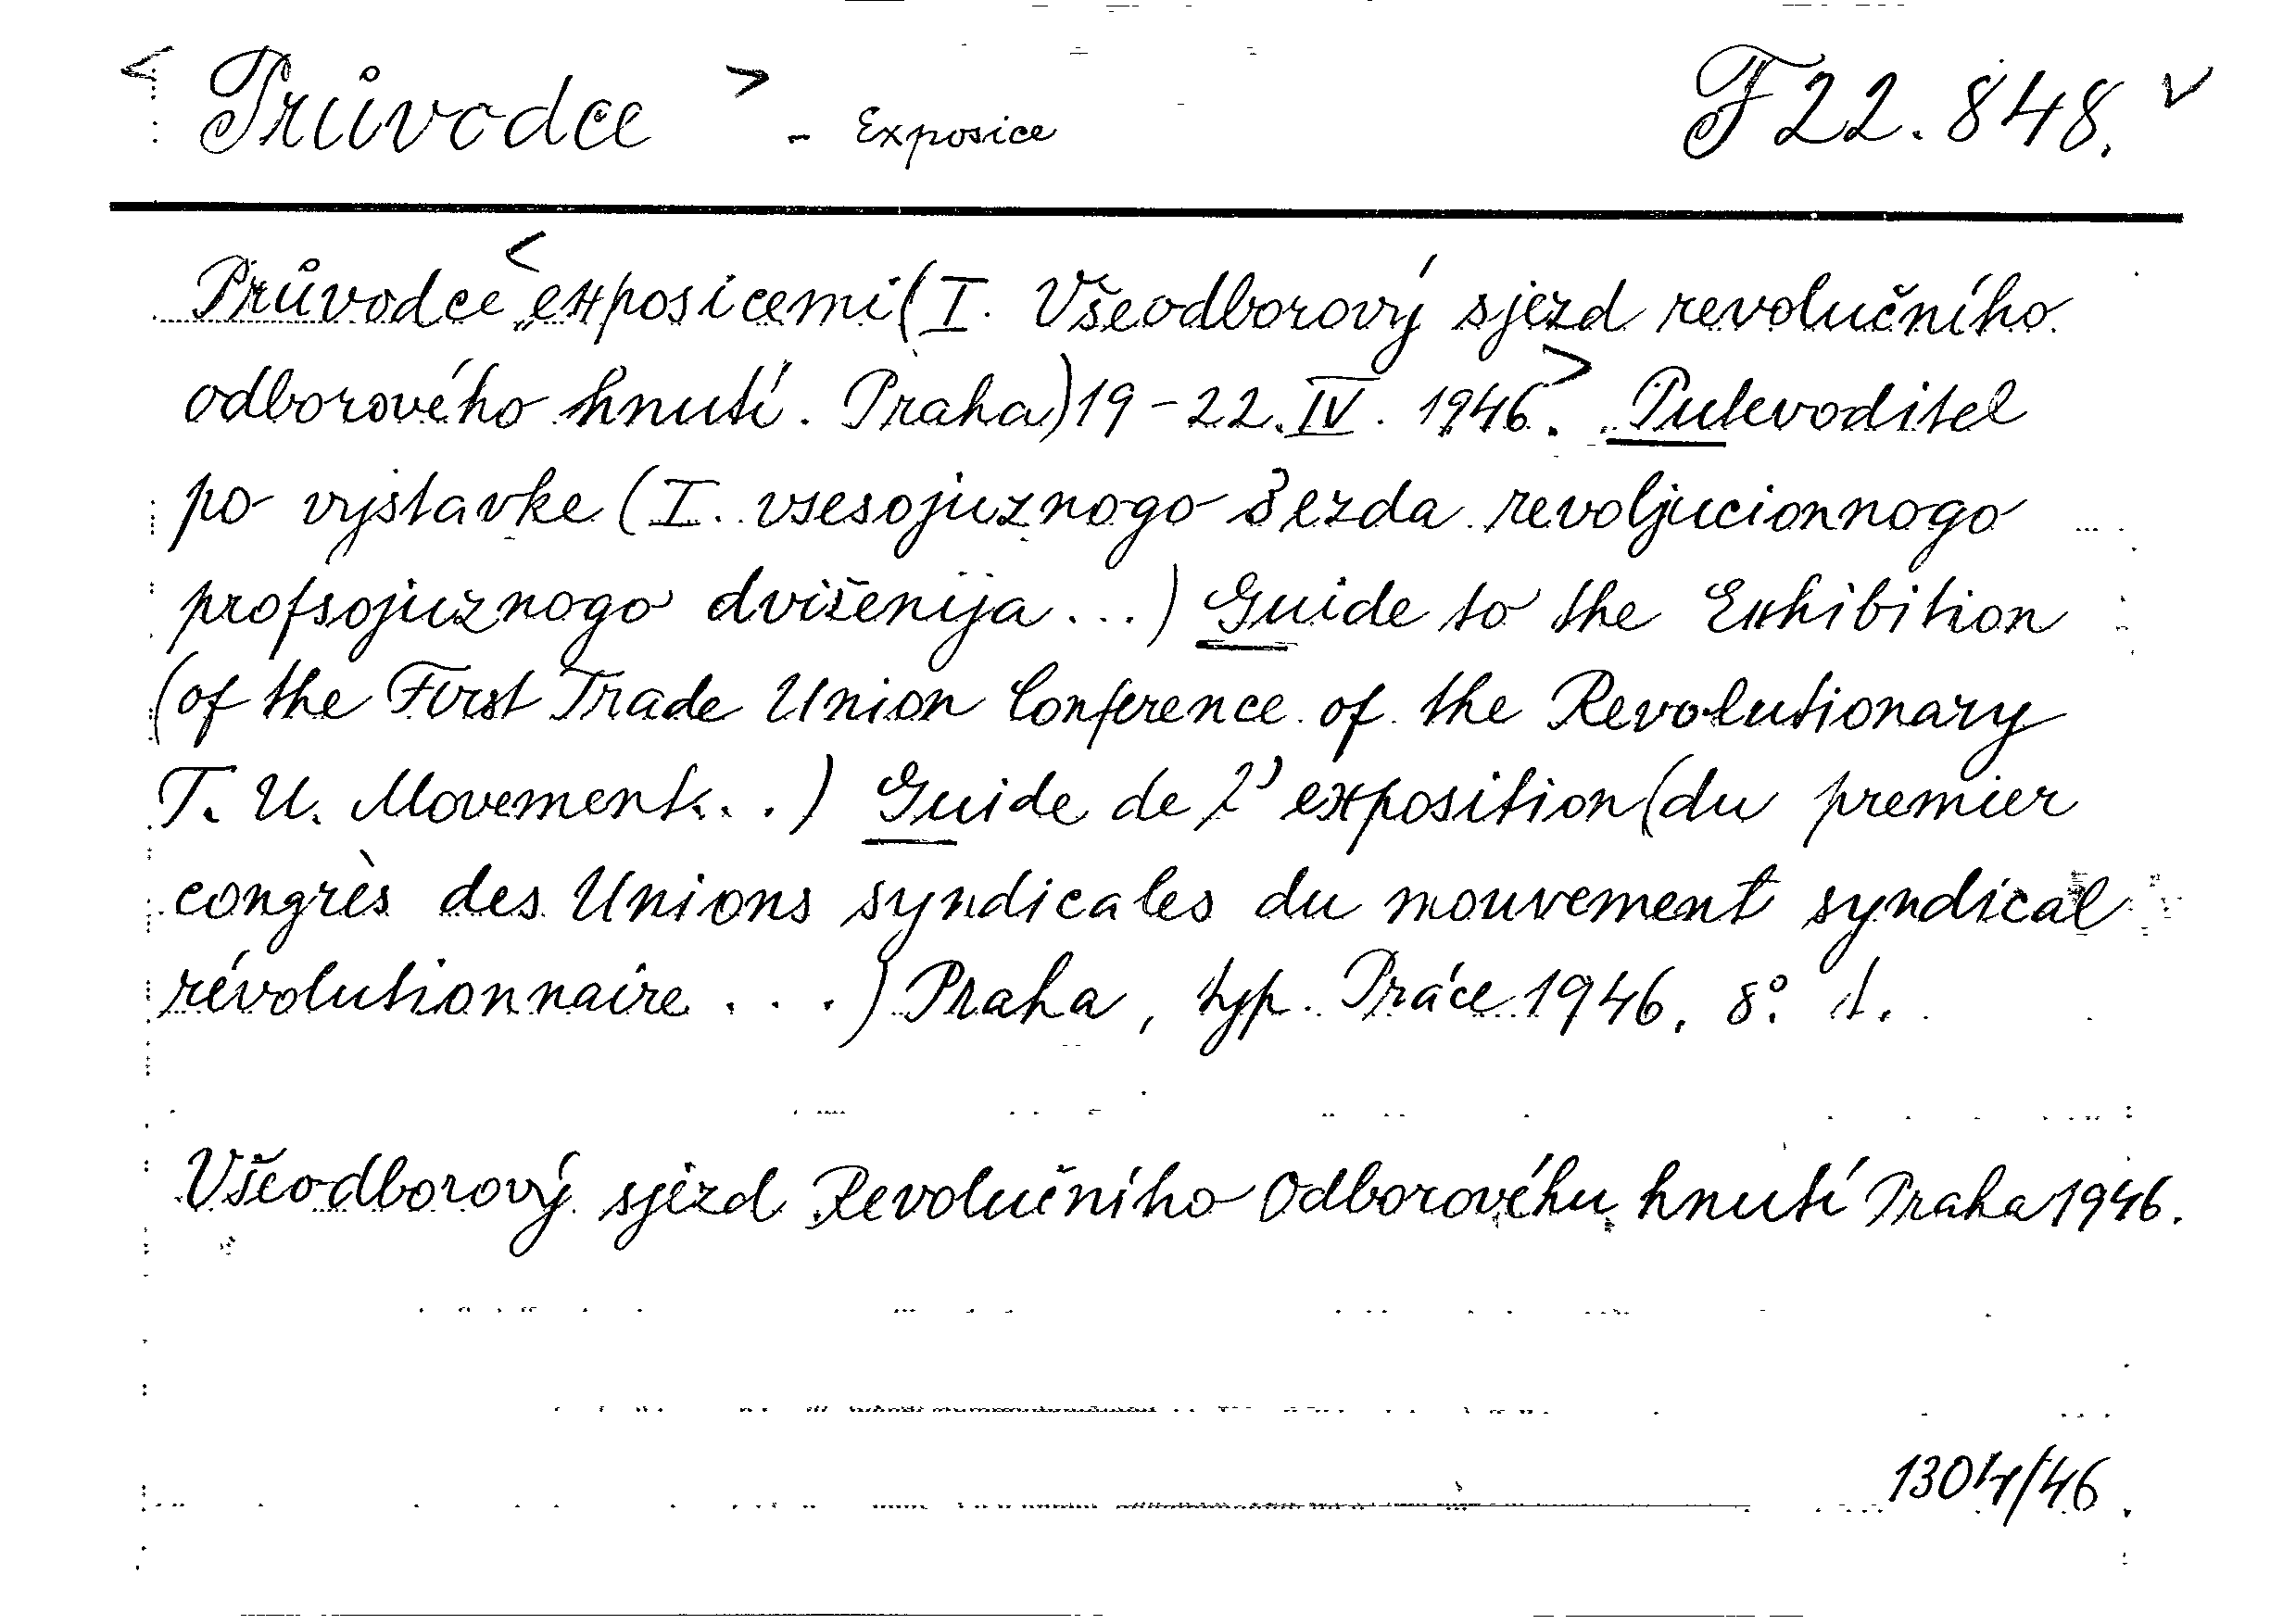 < Průvodce > - Exposice F 22.848. v
Průvodce < exposicemi (I. Všeodborový sjezd revolučního
odborového hnutí. Praha) 19-22. IV. 1946. > Putevoditel
po vystavke (I. vsesojuznogo šezda revoljucionnogo
profsojuznogo dviženija ...) Guide to the Exhibition
(of the First Trade Union Conference of the Revolutionary
T. U. Movement...) Guide de l'exposition (du premier
congrès des Unions syndicales du mouvement syndical
révolutionnaire ...) Praha, typ. Práce 1946. 8°.
Všeodborový sjezd Revolučního Odborového hnutí Praha 1946.
1304/46